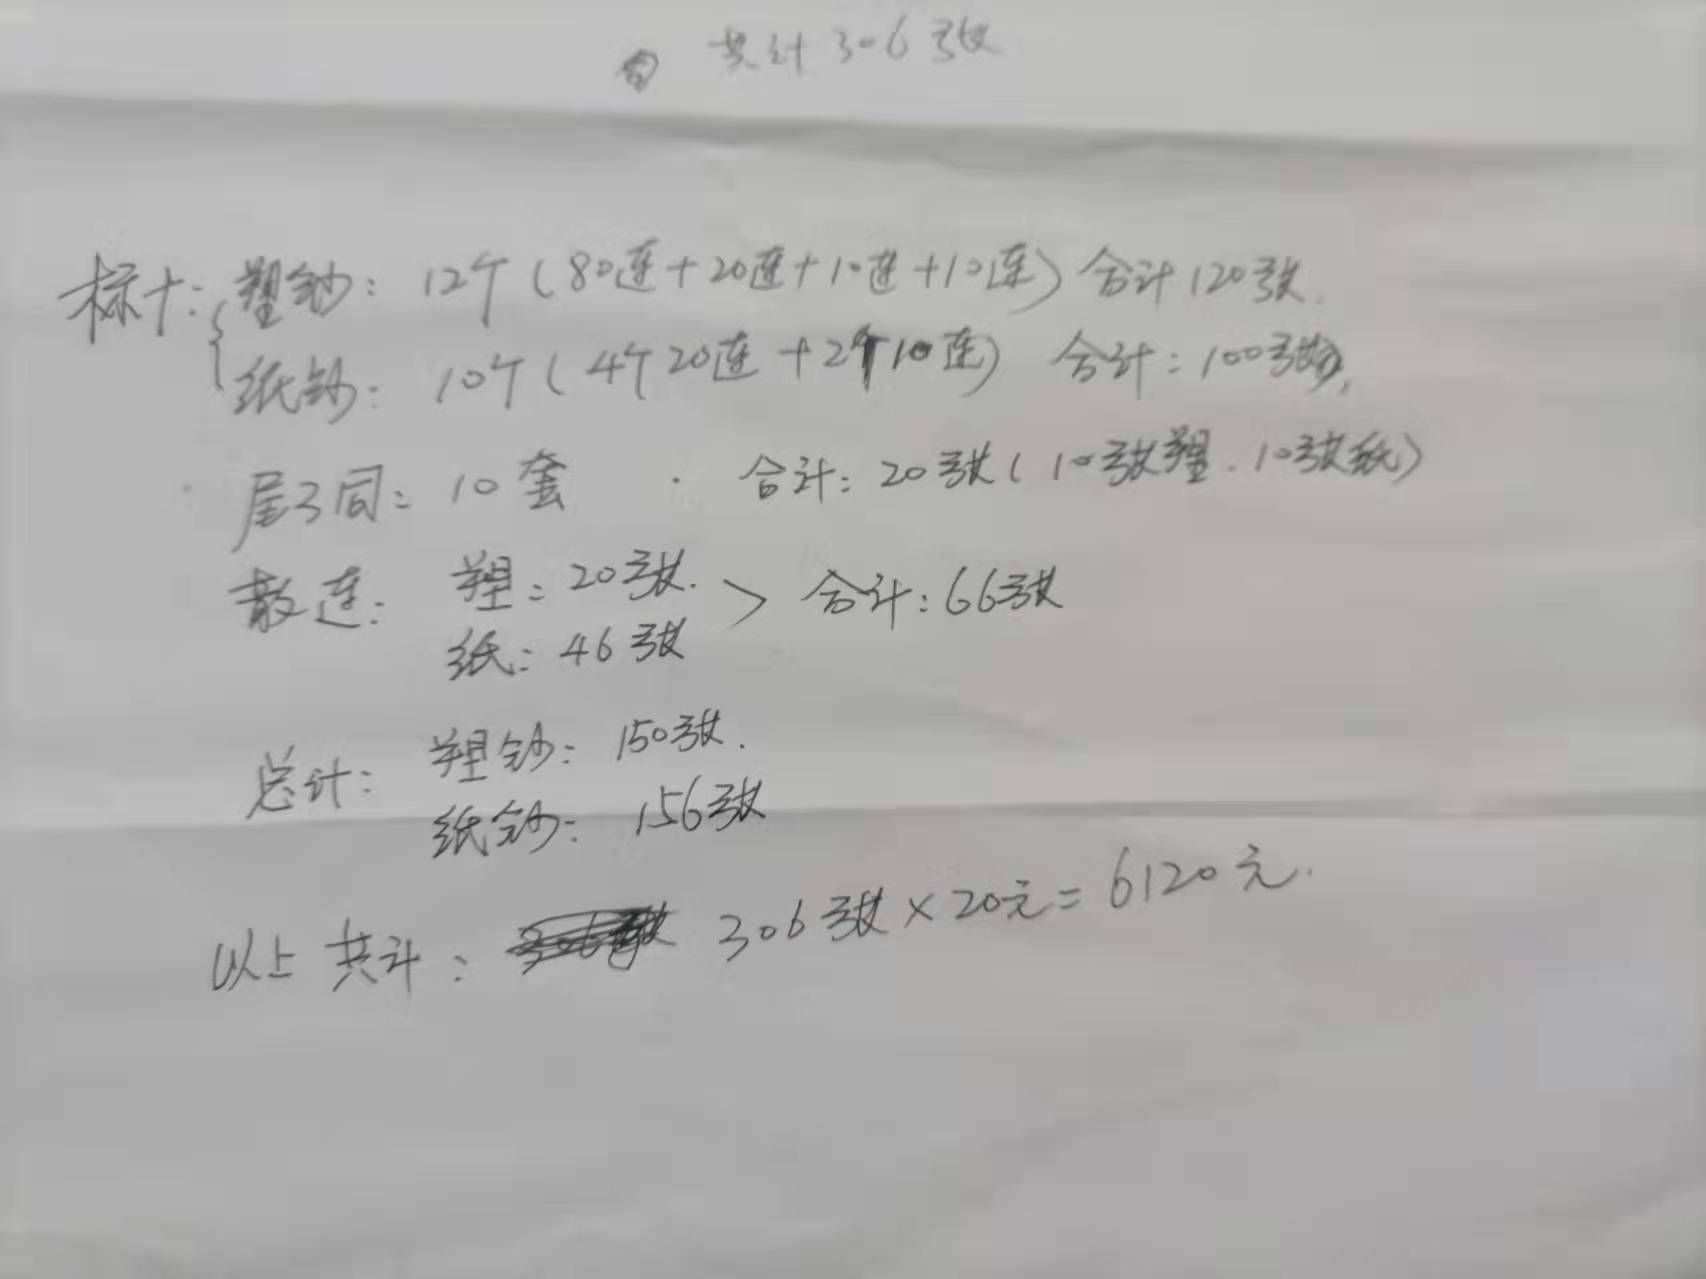 共计306张
标十:{塑钞: 12个(80连+20连+10连+10连) 合计120张.
纸钞: 10个(4个20连+2个10连) 合计:100张,
尾3同: 10套 合计: 20张(10张塑.10张纸)
散连: 塑:20张. > 合计:66张
纸:46张
总计: 塑钞: 150张.
纸钞: 156张
以上共计: 306张×20元=6120元.